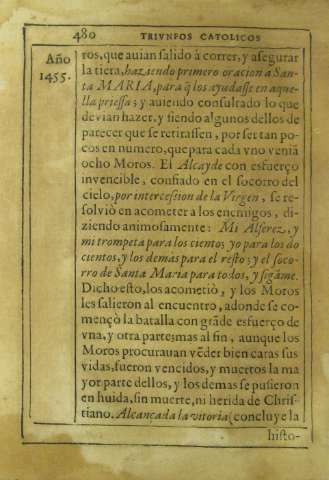 480 TRIVNFOS CATOLICOS
Año
1455.
ros, que auian salido à correr, y asegurar
la tierra, haziendo primero oracion à San-
ta MARIA, para q̃ los ayudasse en aque-
lla priessa; y auiendo consultado lo que
deuian hazer, y siendo algunos dellos de
parecer que se retirassen, por ser tan po-
cos en numero, que para cada vno venia
ocho Moros. El Alcayde con esfuerço
invencible, confiado en el socorro del
cielo, por intercession de la Virgen, se re-
solviò en acometer a los enemigos, di-
ziendo animosamente: Mi Alferez, y
mi trompeta para los ciento; yo para los do
cientos, y los demás para el resto; y el soco-
rro de Santa Maria para todos, y sigāme.
Dicho esto, los acometiò, y los Moros
les salieron al encuentro, adonde se co-
mençò la batalla con grāde esfuerço de
vna, y otra parte; mas al fin, aunque los
Moros procurauan vēder bien caras sus
vidas, fueron vencidos, y muertos la ma
yor parte dellos, y los demas se pusieron
en huida, sin muerte, ni herida de Chris-
tiano. Alcançada la vitoria (concluye la
histo-